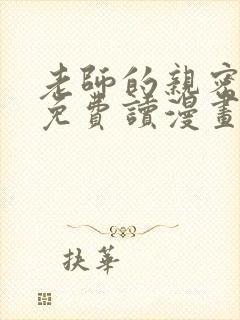 老師的親密
免費讀漫畫
抉華